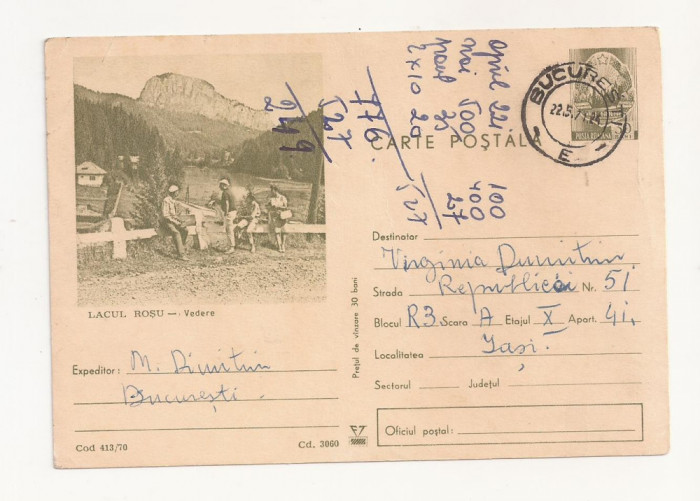 LACUL ROȘU — Vedere
Expeditor: M. Dimitriu
București
Cod 413/70
Cd. 3060
Prețul de vînzare 30 bani
CARTE POȘTALĂ
POȘTA ROMÂNĂ
BUCUREȘTI
E
Destinatar Virginia Dumitriu
Strada Republicii Nr. 51
Blocul R3 Scara A Etajul X Apart. 41
Localitatea Iași
Sectorul Județul
Oficiul poștal:
april 221
mai 500
2 x 10 20
527
100
400
27
776
527
249